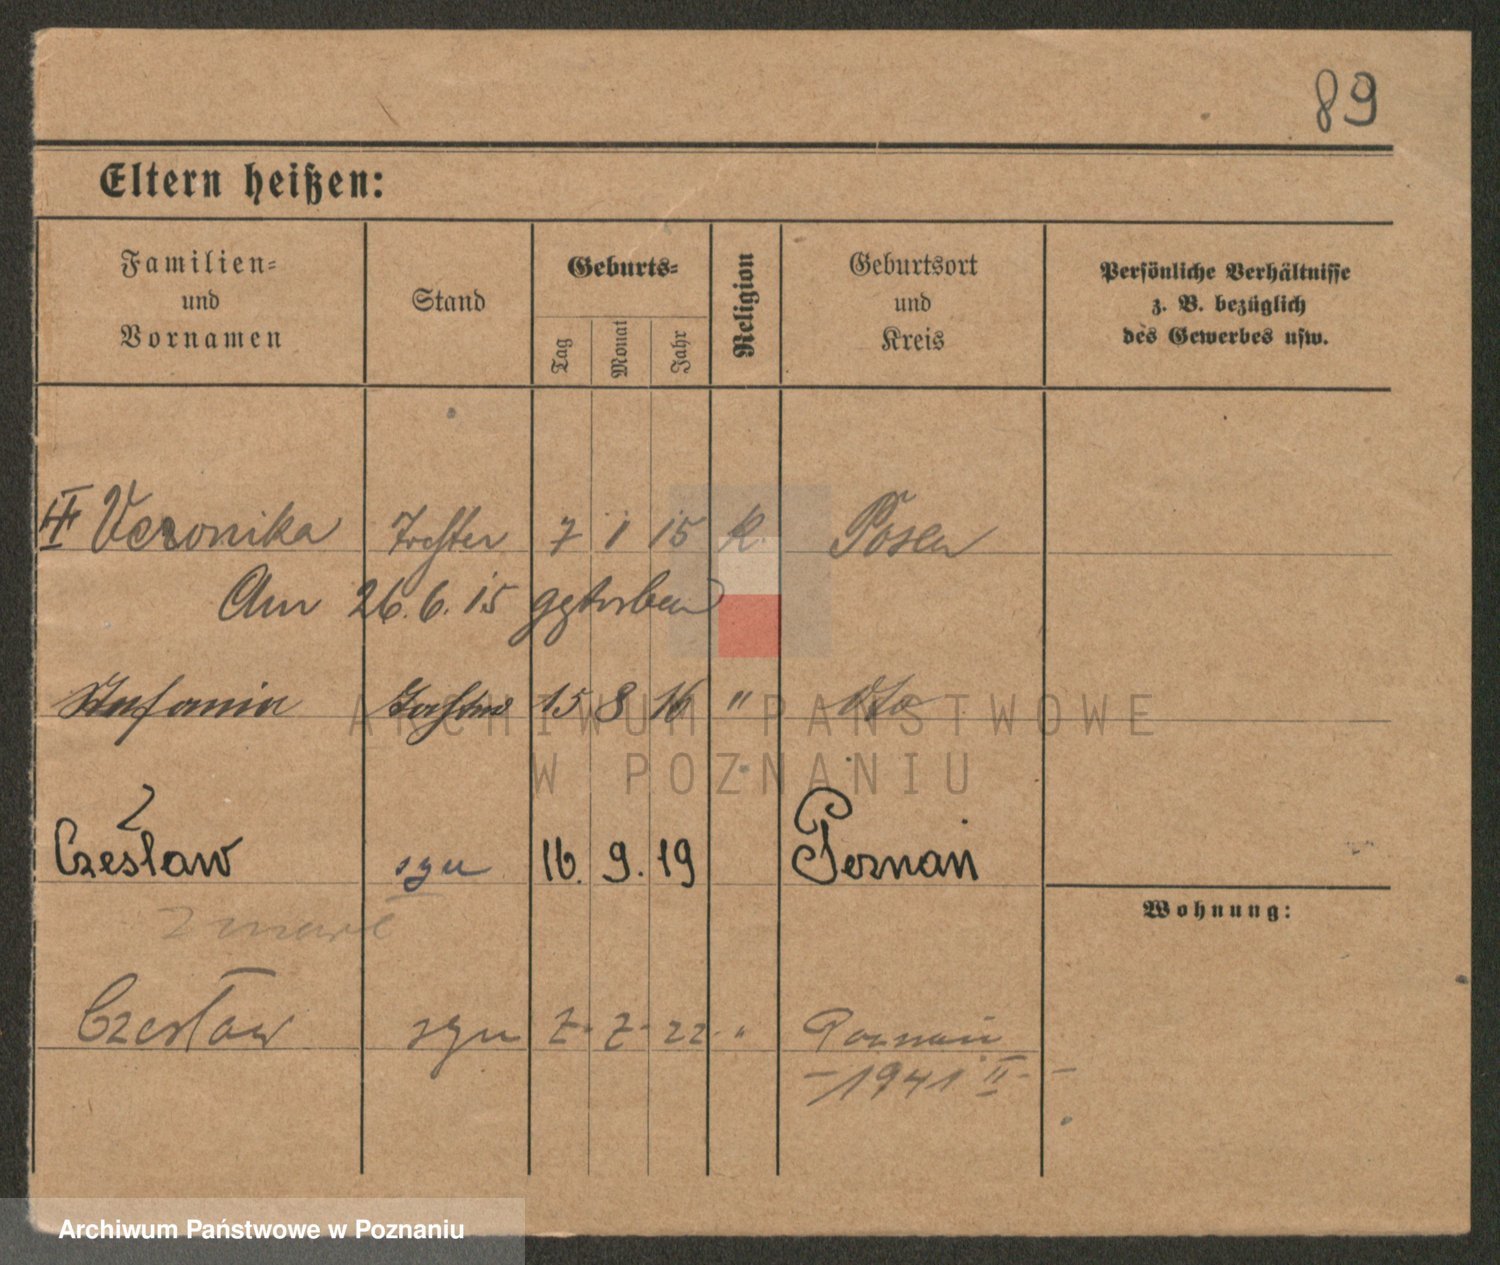 89
Eltern heißen:
Familien- und Vornamen
Stand
Geburts-
Tag
Monat
Jahr
Religion
Geburtsort und Kreis
Persönliche Verhältnisse z. B. bezüglich des Gewerbes usw.
Veronika Tochter 7 1 15 K. Posen
Am 26. 6. 15 gestorben
Stefania Tochter 15 8 16 " dto
ARCHIWUM PAŃSTWOWE
W POZNANIU
Czesław syn 16. 9. 19 Poznań
Wohnung:
zmarł
Czesław syn 7. 7. 22. " Poznań
- 1941 II - -
Archiwum Państwowe w Poznaniu